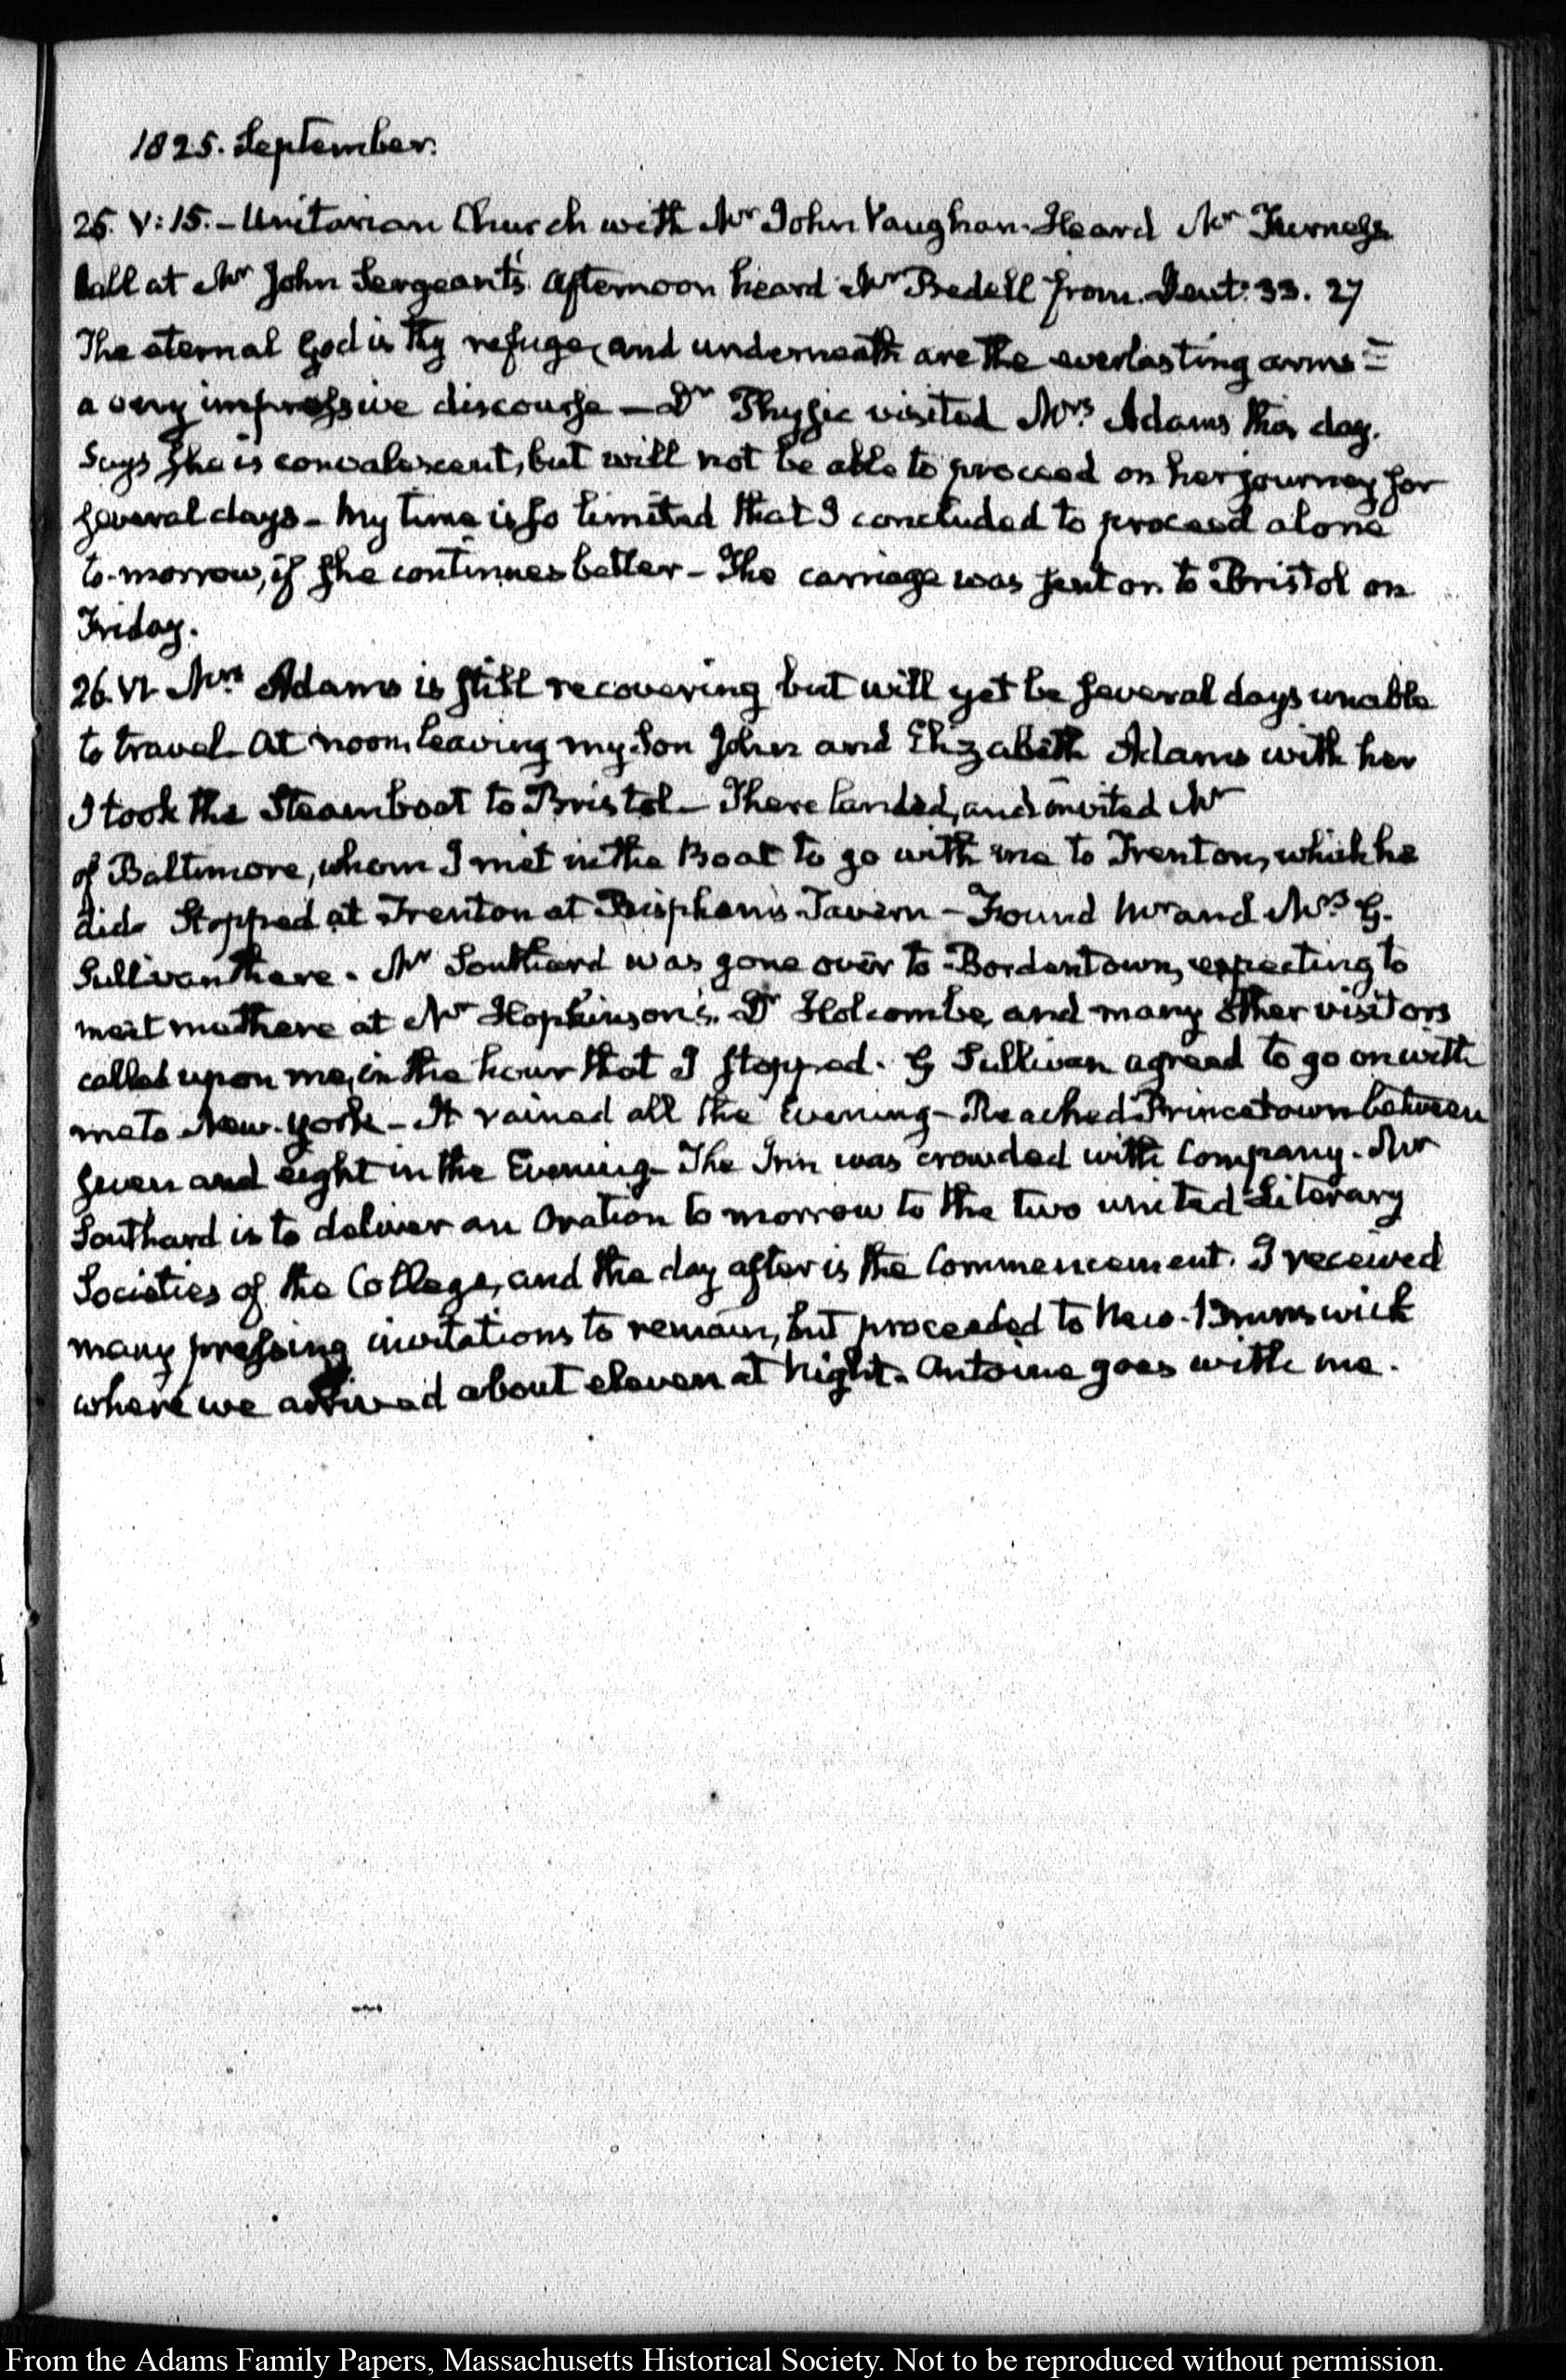 1825. September.
25. V: 15. – Unitarian Church with Mr John Vaughan. Heard Mr Furness
Call at Mr John Sergeant's. Afternoon heard Mr Bedell from. Deut: 33. 27
The eternal God is thy refuge, and underneath are the everlasting arms =
a very impressive discourse – Dr Physic visited Mrs Adams this day.
Says she is convalescent, but will not be able to proceed on her journey for
several days – My time is so limited that I concluded to proceed alone
to-morrow, if she continues better – The carriage was sent on to Bristol on
Friday.
26. VI. Mrs Adams is still recovering but will yet be several days unable
to travel. At noon leaving my Son John and Elizabeth Adams with her
I took the Steamboat to Bristol – There landed, and invited Mr
of Baltimore, whom I met in the Boat to go with me to Trenton, which he
did. Stopped at Trenton at Bispham's Tavern – Found Mr and Mrs G.
Sullivan there. Mr Southard was gone over to Bordentown, expecting to
meet me there at Mr Hopkinson's. Dr Holcombe, and many other visitors
called upon me, in the hour that I stopped. G Sullivan agreed to go on with
me to New-York – It rained all the Evening – Reached Princetown between
seven and eight in the Evening – The Inn was crowded with Company. Mr
Southard is to deliver an Oration to morrow to the two united Literary
Societies of the College, and the day after is the Commencement. I received
many pressing invitations to remain, but proceeded to New-Brunswick
where we arrived about eleven at Night. Antoine goes with me.
From the Adams Family Papers, Massachusetts Historical Society. Not to be reproduced without permission.